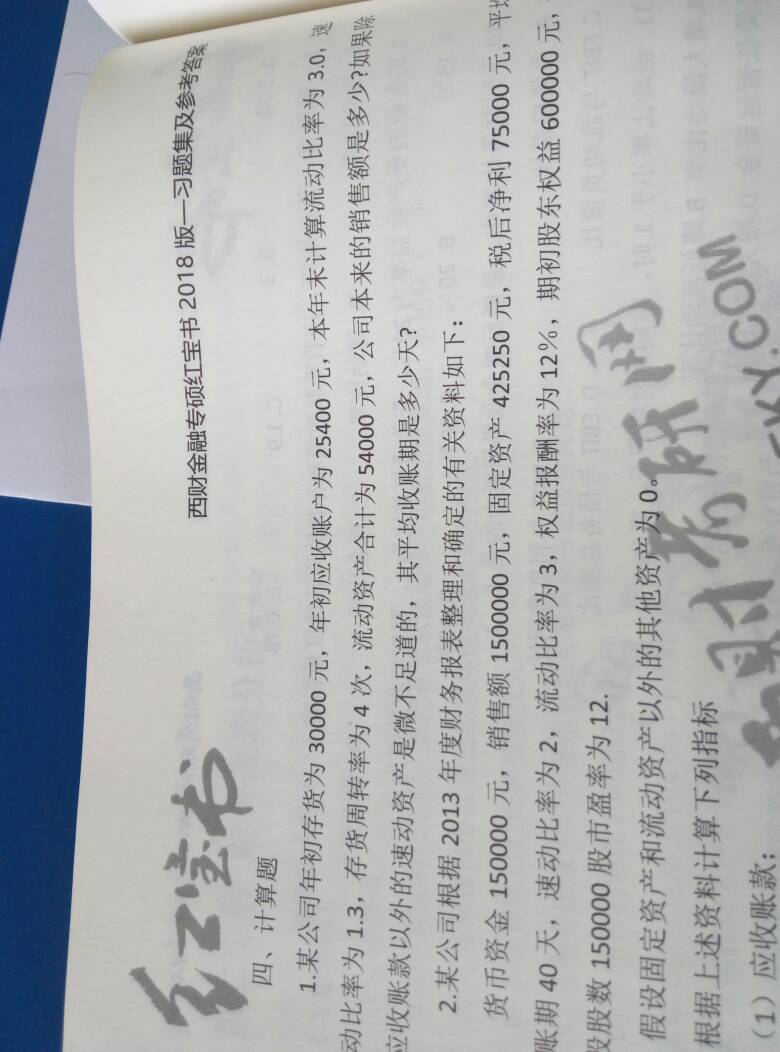 西财金融专硕红宝书 2018 版一习题集及参考答案
红宝书
四、计算题
1.某公司年初存货为 30000 元，年初应收账户为 25400 元，本年末计算流动比率为 3.0，速
动比率为 1.3，存货周转率为 4 次，流动资产合计为 54000 元，公司本来的销售额是多少?如果除
应收账款以外的速动资产是微不足道的，其平均收账期是多少天?
2.某公司根据 2013 年度财务报表整理和确定的有关资料如下：
货币资金 150000 元，销售额 1500000 元，固定资产 425250 元，税后净利 75000 元，平均
账期 40 天，速动比率为 2，流动比率为 3，权益报酬率为 12％，期初股东权益 600000 元，
股股数 150000 股市盈率为 12.
假设固定资产和流动资产以外的其他资产为 0。
根据上述资料计算下列指标
（1）应收账款；
财考研网
.COM